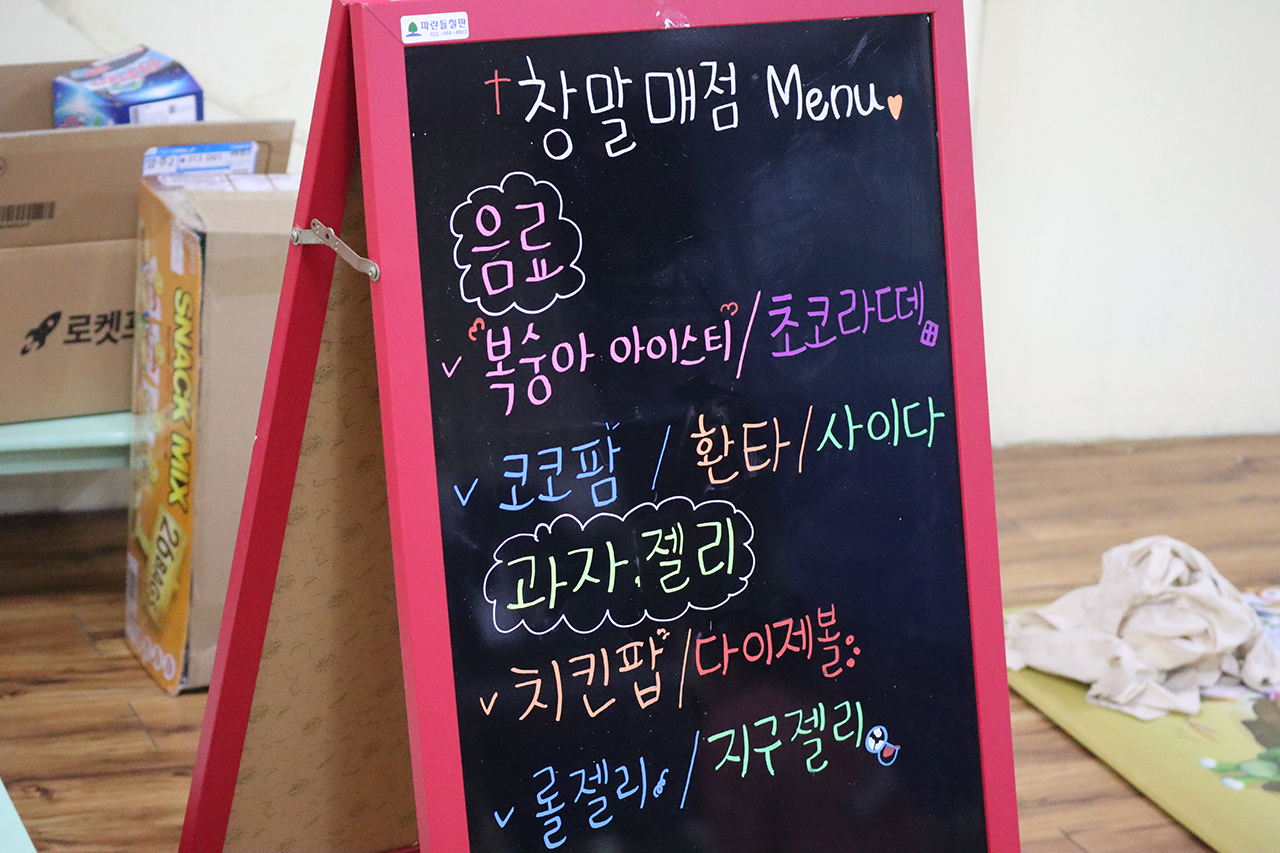 파란들칠판
창말매점 Menu
음료
복숭아 아이스티/초코라떼
코코팜 / 환타/사이다
과자.젤리
치킨팝/다이제볼
롤젤리/지구젤리
로켓프
SNACK MIX